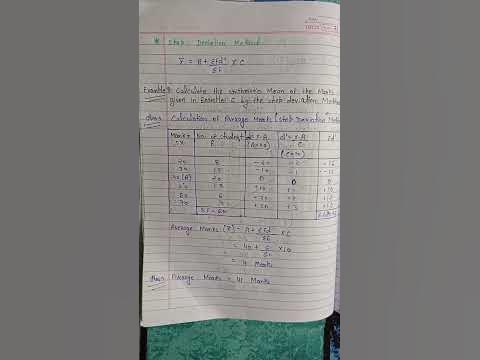 * Step Deviation Method
X̄ = A + Σfd' × C
Σf
Example: Calculate the arithmetic Mean of the Marks
given in Example 6 by the step deviation Method
Ans:- Calculation of Average Marks (Step Deviation Method
Marks No. of students d = X-A d' = X-A fd'
X f (A=40) C
(C=10)
20 8 -20 -2 -16
30 12 -10 -1 -12
40(A) 20 0 0 0
50 10 +10 +1 +10
60 6 +20 +2 +12
70 4 +30 +3 +12
Σf = 60
Average Marks (X̄) = A + Σfd' × C
Σf
= 40 + × 10
60
= 41 Marks
Ans:- Average Marks = 41 Marks